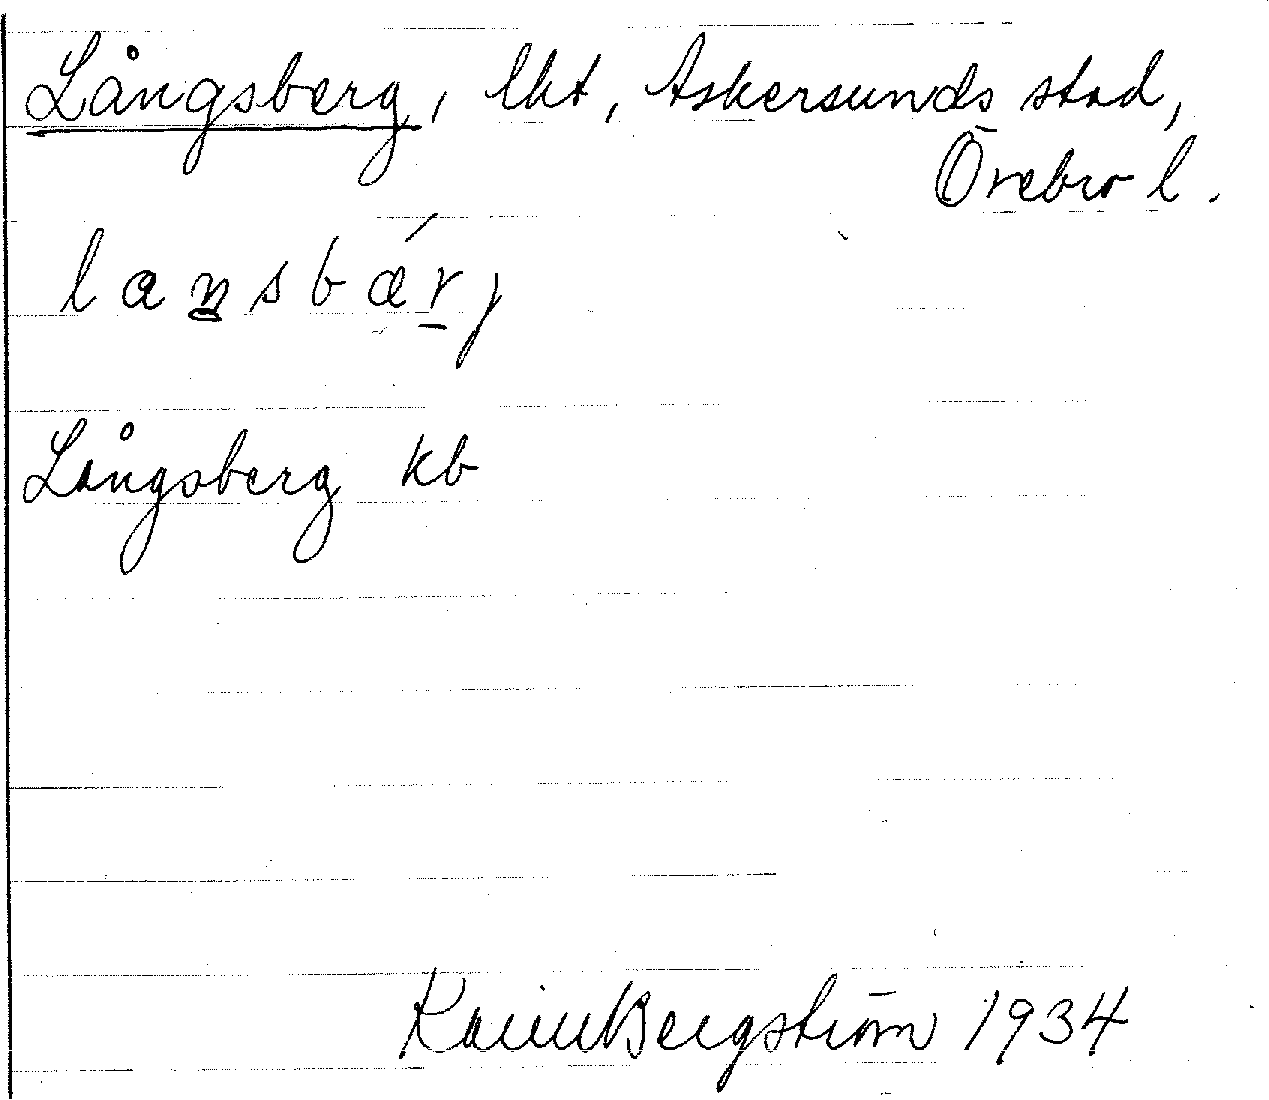 Långsberg, lht, Askersunds stad,
Örebro l.
lansbǽrj
Långsberg kb
Karin Bergström 1934